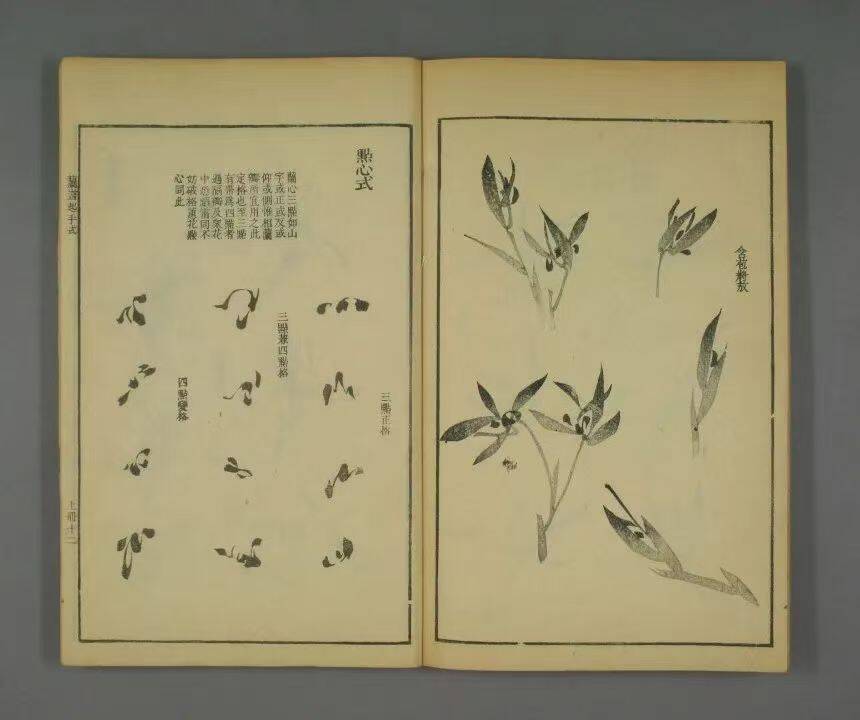 含苞將放
點心式
蘭心三點如山
字或正或反或
仰或側惟相蘭
瓣所宜用之此
定格也至三點
有帶爲四點者
過滿瓣及叢花
中恐蹈雷同不
妨破格蕙花點
心同此
三點正格
三點兼四點格
四點變格
蘭譜起手式
上冊十二